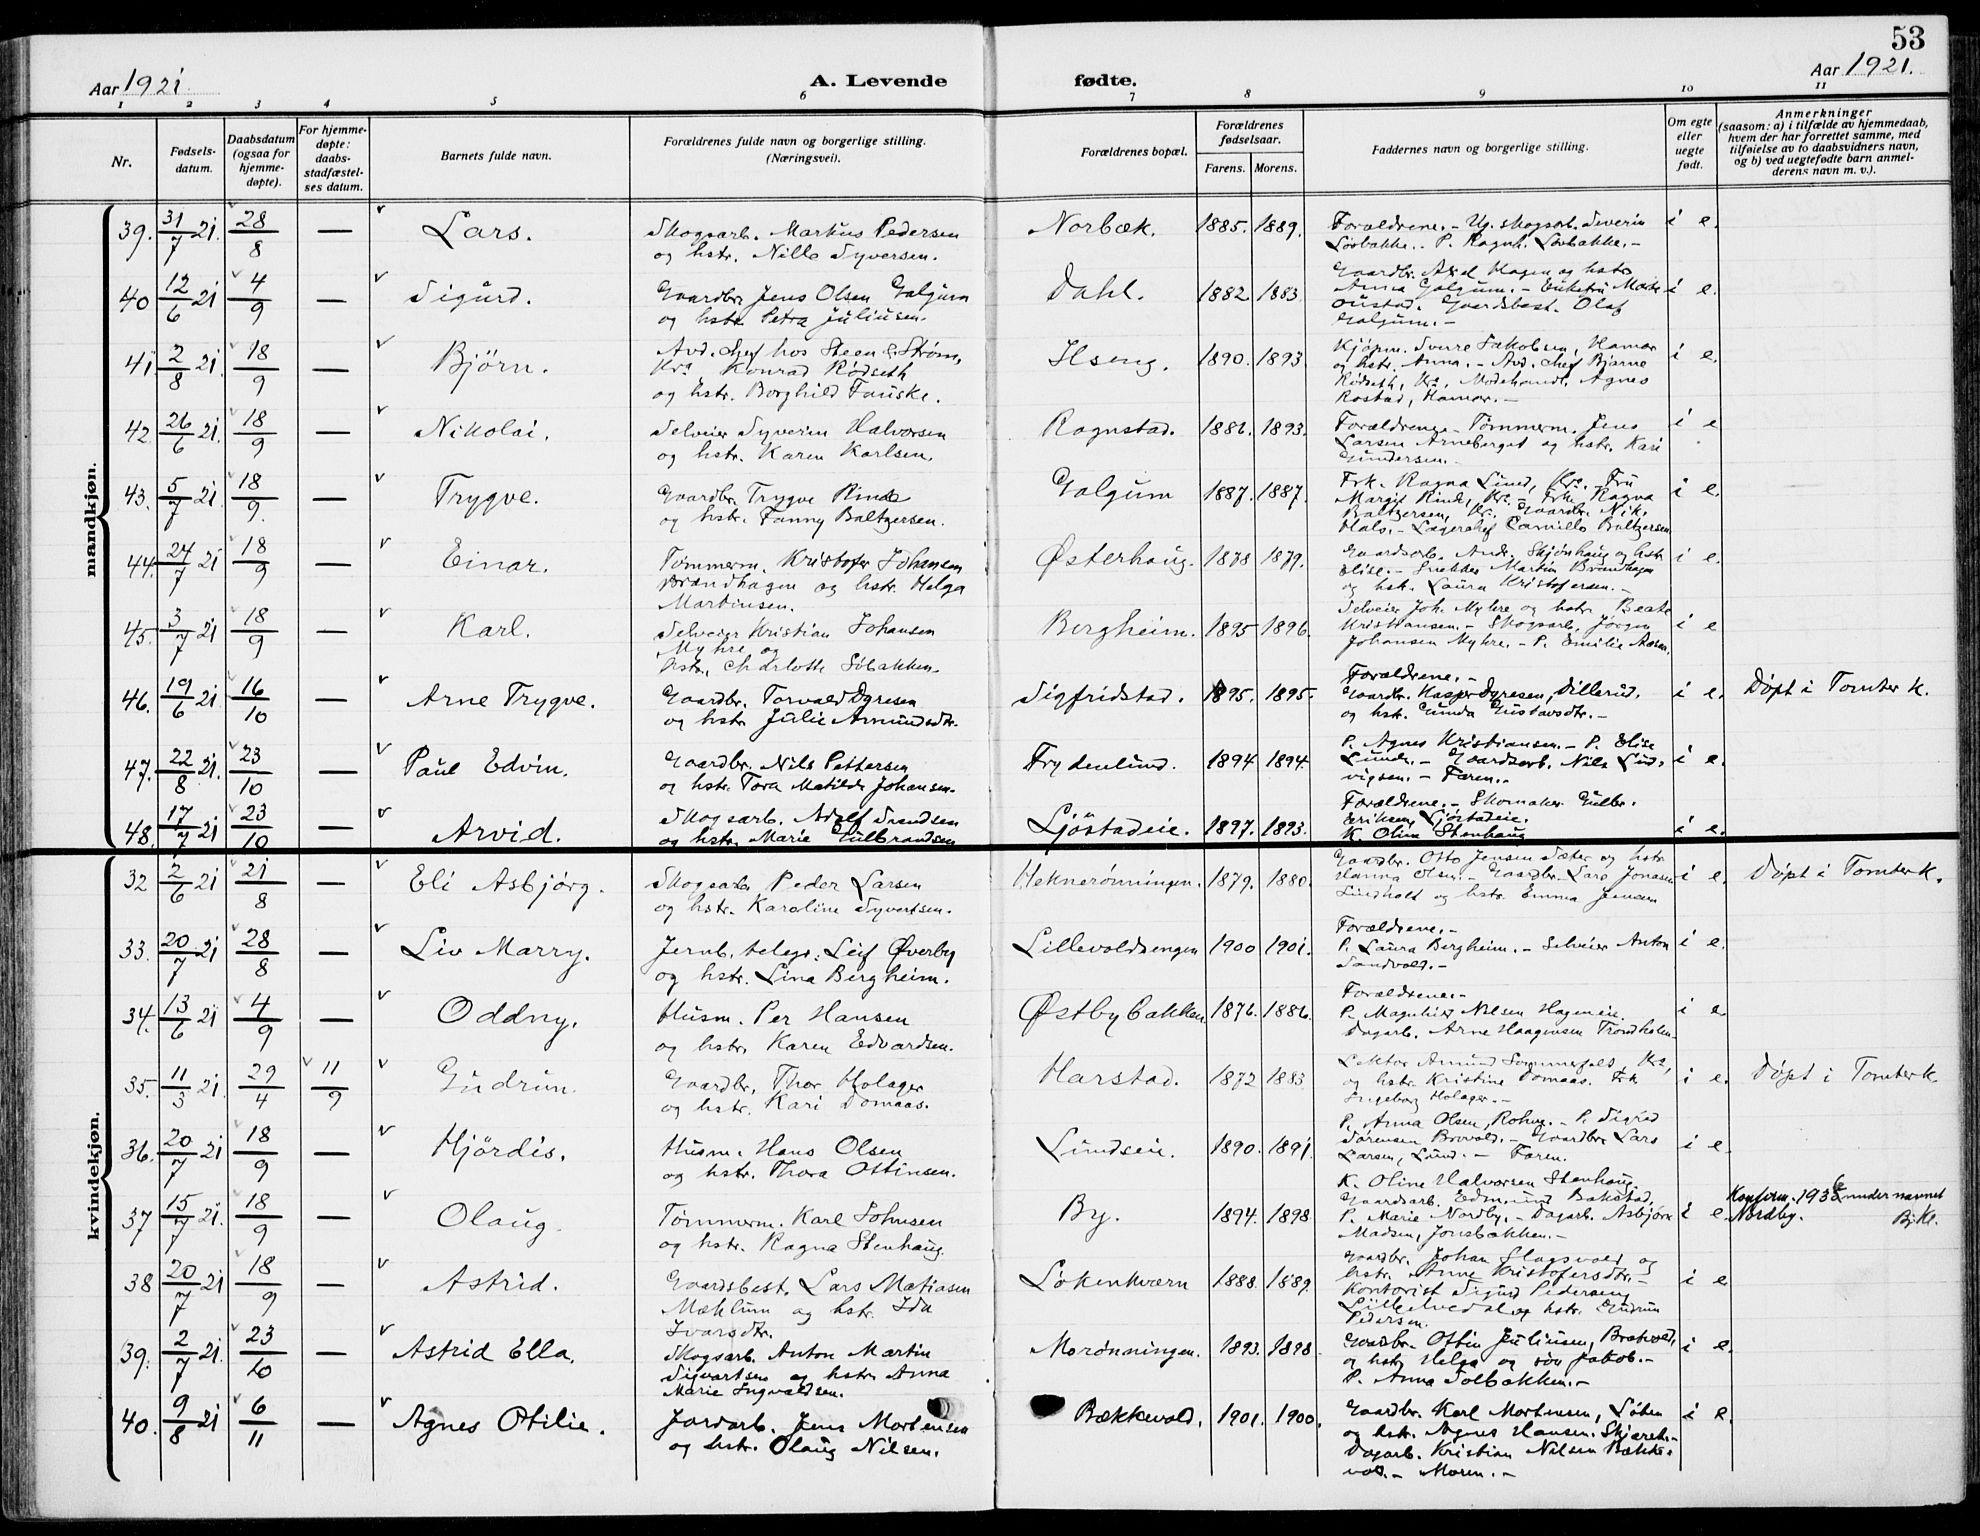 53
Aar 1921. A. Levende fødte. Aar 1921.
1 2 3 4 5 6 7 8 9 10 11
Nr. Fødsels-datum. Daabsdatum (ogsaa for hjemme-døpte). For hjemme-døpte: daabs-stadfæstel-ses datum. Barnets fulde navn. Forældrenes fulde navn og borgerlige stilling. (Næringsvei). Forældrenes bopæl. Forældrenes fødselsaar. Farens. Morens. Faddernes navn og borgerlige stilling. Om egte eller uegte født. Anmerkninger (saasom: a) i tilfælde av hjemmedaab, hvem der har forrettet samme, med tilføielse av to daabsvidners navn, og b) ved uegtefødte barn anmel-derens navn m. v.).
mandkjøn.
39. 31/7 21. 28/8 — Lars. Skogsarb. Markus Pedersen og hstr. Nille Syversen. Norbæk. 1885. 1889. Forældrene. - Ug. skogsarb. Severin Løvbakke. - P. Ragnh. Løvbakke. - i e.
40 12/6 21 4/9 — Sigurd. Gaardbr. Jens Olsen Galgum og hstr. Petra Juliusen. Dahl. 1882. 1883. Gaardbr. Axel Hagen og hstr. Anna Galgum. - Enkefru Marte Oustad. Gaardsbest. Olaf Galgum. - i e.
41 2/8 21. 18/9 — Bjørn. Avd. chef hos Steen & Strøm, Kra. Konrad Rødseth og hstr. Borghild Fauske. Ilseng. 1890. 1893 Kjøpm. Sverre Jakobsen, Hamar og hstr. Anna. - Avd. chef Bjarne Rødseth, Kra. Modehandl. Agnes Rostad, Hamar. - i e.
42. 26/6 21. 18/9 — Nikolai. Selveier Syverin Halvorsen og hstr. Karen Karlsen. Ragnstad. 1886. 1893. Forældrene - Tømmerm. Jens Larsen Arneberget og hstr. Kari Gundersen. - i e
43. 5/7 21 18/9. — Trygve. Gaardbr. Trygve Rinde og hstr. Fanny Baltzersen. Galgum 1887. 1887. Frk. Ragna Lund, Kra. - Fru Margit Rinde, Kra. - Frk. Ragna Baltzersen, Kr. Gaardbr. Nik. Hals. - Lagerchef Camillo Baltzersen i e.
44. 24/7 21 18/9 — Einar. Tømmerm. Kristofer Johansen Brandhagen og hstr. Helga Martinsen. Østerhaug. 1878 1879. Gaardsarb. Andr. Skjønhaug og hstr. Elise. - Snekker Martin Brandhagen og hstr. Laura Kristofersen. - i e.
45. 3/7 21 18/9 — Karl. Selveier Kristian Johansen Myhre og hstr. Charlotte Solbakken. Bergheim. 1895 1896. Selveier Joh. Myhre og hstr. Beate Kristiansen. - Skogsarb. Jørgen Johansen Myhre. - P. Emilie Aasen. i e
46. 19/6 21 16/10 — Arne Trygve. Gaardbr. Torvald Dyresen og hstr. Julie Amundsdtr. Sigfridstad. 1895. 1895. Forældrene. - Gaardbr. Kasper Dyresen, Dillerud. og hstr. Gunda Gustavsdtr. - i e. Døpt i Tomter k.
47. 22/8 21. 23/10 — Paul Edvin. Gaardbr. Nils Pettersen og hstr. Tora Matilde Johansen. Frydenlund. 1894 1894. P. Agnes Kristiansen. - P. Elise Lunde. - Gaardsarb. Nils Ludvigsen. - Faren. - i e.
48. 17/7 21 23/10 — Arvid. Skogsarb. Adolf Svendsen og hstr. Marie Gulbrandsen Ljøstadeie. 1897. 1893. Forældrene. - Skomaker Gulbr. Eriksen, Ljøstadeie. K. Oline Stenhaug i e.
kvindekjøn.
32 2/6 21 21/8 — Eli Asbjørg. Skogsarb. Peder Larsen og hstr. Karoline Syvertsen. Heknerønningen. 1879. 1880. Gaardbr. Otto Jensen Sæter og hstr. Hanna Olsen. - Gaardbr. Lars Jonasen Lindholt og hstr. Emma Jensen i e. Døpt i Tomter k.
33. 20/7 21 28/8 — Liv Marry. Jernb. telegr. Leif Øverby og hstr. Lina Bergheim. Lillevoldsengen 1900 1901. Forældrene. - P. Laura Bergheim. - Selveier Anton Sandvold. - i e.
34. 13/6 21 4/9 — Oddny. Husm. Per Hansen og hstr. Karen Edvardsen. Østbybakken 1876. 1886. Forældrene. - P. Magnhild Nilsen Hageneie. Dagarb. Arne Haagensen Trondholen i e
35. 11/3 21 29/4 11/9 Gudrun. Gaardbr. Thor Holager og hstr. Kari Domaas. Harstad. 1872 1883 Lektor Amund Sommerfelt, Kra, og hstr. Kristine Domaas. Frk. Ingeborg Holager. - i e. Døpt i Tomter k.
36. 20/7 21 18/9 — Hjørdis. Husm. Hans Olsen og hstr. Thora Ottinsen. Lundseie. 1890. 1891. P. Anna Olsen, - P. Sigrid Sørensen - Gaardbr. Lars Larsen, Lund. - Faren. i e.
37 15/7 21. 18/9 — Olaug. Tømmerm. Karl Johnsen og hstr. Ragna Stenhaug. By. 1894. 1898. K. Oline Halvorsen Stenhaug. Gaardsarb. Edmund Bakstad. P. Marie Nordby. - Dagarb. Asbjørn Madsen, Jonsbakken. - i e. Konfirm. 1936 under navnet Nordby. B.Kl.
38 20/7 21 18/9 — Astrid. Gaardsbest. Lars Matiasen Mæhlum og hstr. Ida Ivarsdtr. Løkenkværn 1888. 1889. Gaardbr. Johan Slagsvold og hstr. Anne Kristofersdtr. - Kontorist Sigurd Pedersen Lillehvedal og hstr. Gudrun Pedersen. i e
39. 2/7 21. 23/10 — Astrid Ella. Skogsarb. Anton Martin Sigvartsen og hstr. Anna Marie Ingvaldsen. Morønningen. 1893. 1898 Gaardbr. Ottin Juliusen, Bratvold, og hstr. Helga og søn Jakob. - P. Anna Solbakken. - i e.
40. 9/8 21 6/11 — Agnes Otilie. Jordarb. Jens Mortensen og hstr. Olaug Nilsen. Bækkevold. 1901. 1900. Gaardbr. Karl Mortensen, Løten og hstr. Agnes Hansen. Dagarb. Kristian Nilsen Bækkevold. - Moren. - i e.